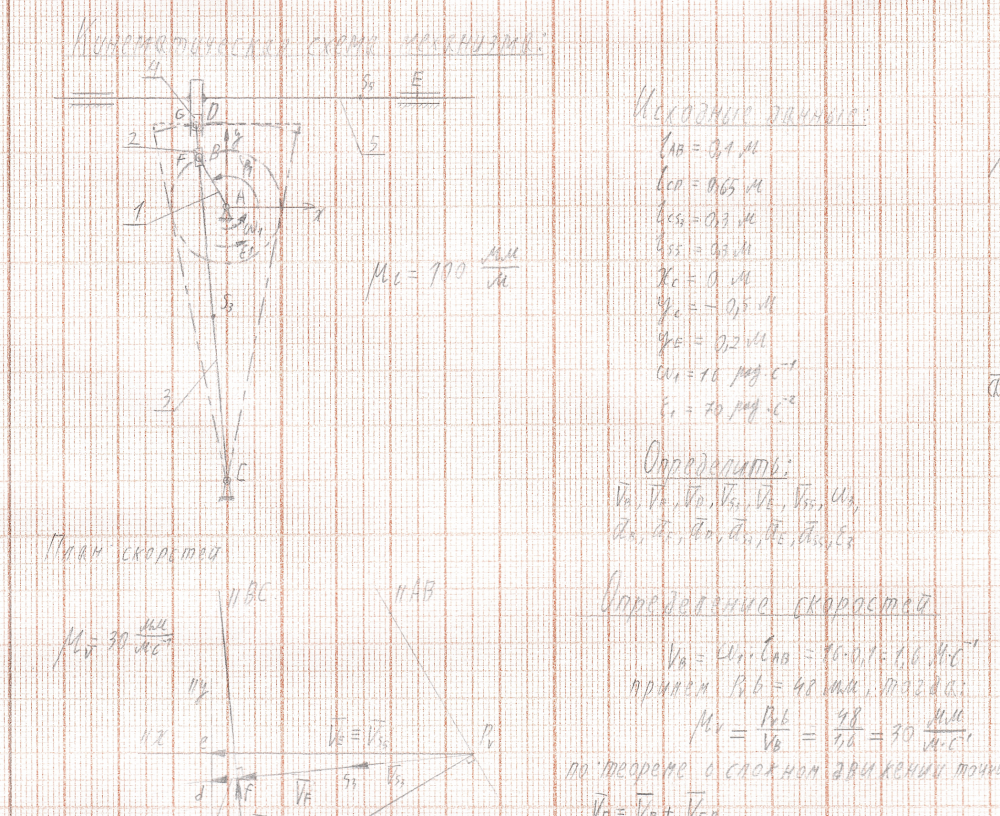 Кинематическая схема механизма:
4
S₅ E
G D
5
2
y
F B
φ₁
1
A
x
ω₁
ε₁
μ_l = 100 мм/м
S₃
3
C
Исходные данные:
l_AB = 0,1 м
l_CD = 0,65 м
l_CS₃ = 0,3 м
l_S5 = 0,3 м
x_C = 0 м
y_C = - 0,5 м
y_E = 0,2 м
ω₁ = 16 рад·с⁻¹
ε₁ = 70 рад·с⁻²
Определить:
План скоростей
μ_v = 30 мм/м·с⁻¹
||BC
||AB
||y
||x
e
V_E ≡ V_S5
P_v
d
f
V_F
S₃
V_S3
Определение скоростей
V_B = ω₁·l_AB = 16·0,1 = 1,6 м·с⁻¹
примем P_v b = 48 мм, тогда:
μ_v = P_v b/V_B = 48/1,6 = 30 мм/м·с⁻¹
по теореме о сложном движении точки